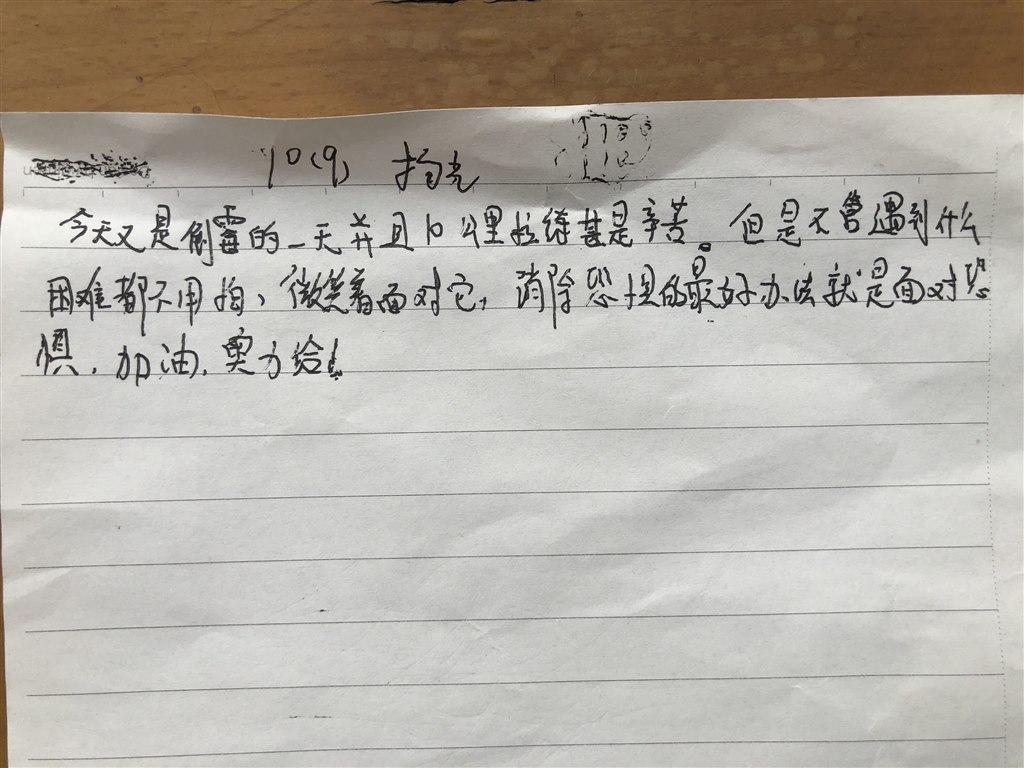 10(9)
今天又是倒霉的一天并且10公里拉练甚是辛苦。但是不管遇到什么
困难都不用怕、微笑着面对它，消除恐惧的最好办法就是面对恐
惧，加油，奥力给！